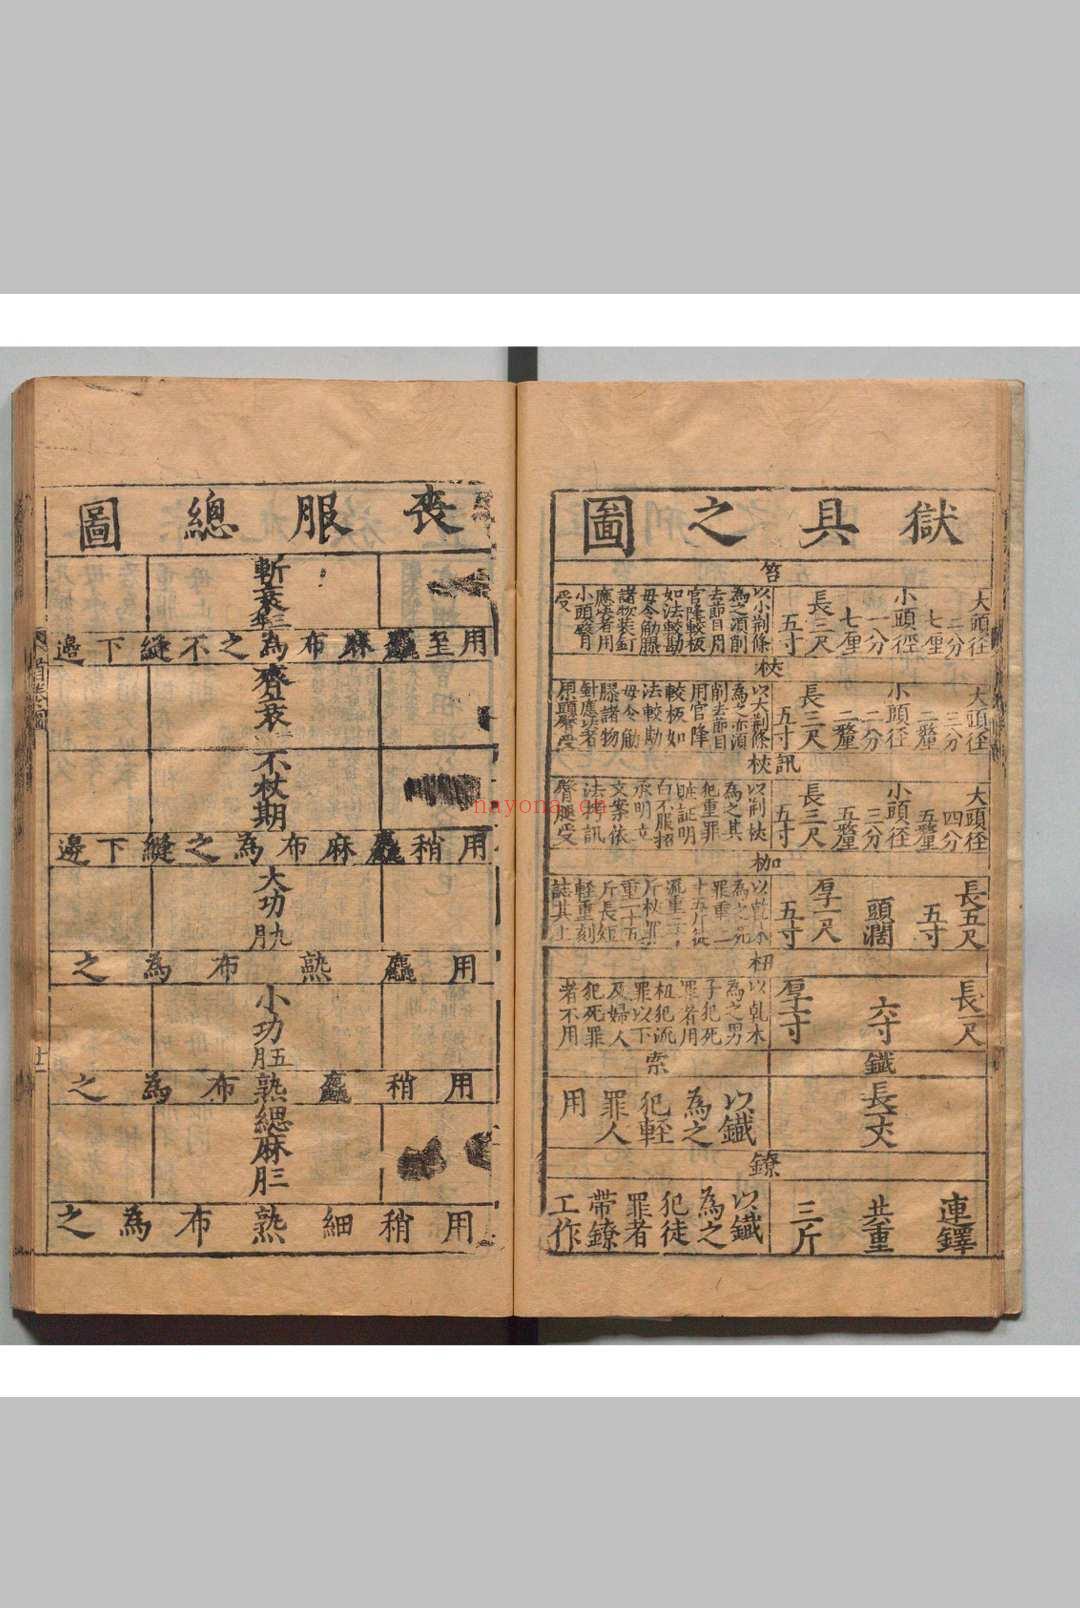 獄具之圖
笞
大頭徑
二分
七厘
小頭徑
一分
七厘
長三尺
五寸
以小荊條
為之須削
去節目用
官降較板
如法較勘
毋令觔膠
諸物裝釘
應决者用
小頭臀
受
杖
大頭徑
三分
二釐
小頭徑
二分
二釐
長三尺
五寸
以大荊條
為之亦須
削去節目
用官降
較板如
法較勘
毋令觔
膠諸物
釘應决者
臀受
訊杖
大頭徑
四分
五釐
小頭徑
三分
五釐
長三尺
五寸
以荊杖
為之其
犯重罪
贓証明
白不服招
承明立
文案依
法拷訊
臀腿受
枷
長五尺
五寸
頭濶
厚一尺
五寸
以乾木
為之死
罪重二
十五斤徒
流重二
斤杖罪
重一十五
斤長短
輕重刻
誌其上
杻
長一尺
六寸
厚一寸
以乾木
為之男
子犯死
罪者用
杻犯流
罪以下
及婦人
犯死罪
者不用
鐵索
長一丈
以鐵
為之
犯輕
罪人
用
鐐
連鐶
共重
三斤
以鐵
為之
犯徒
罪者
帶鐐
工作
喪服總圖
斬衰三年
用至麤麻布為之不縫下邊
齊衰
不杖期
用稍麤麻布為之縫下邊
大功九月
用麤熟布為之
小功五月
用稍麤熟布為之
緦麻三月
用稍細熟布為之
nayona.cn